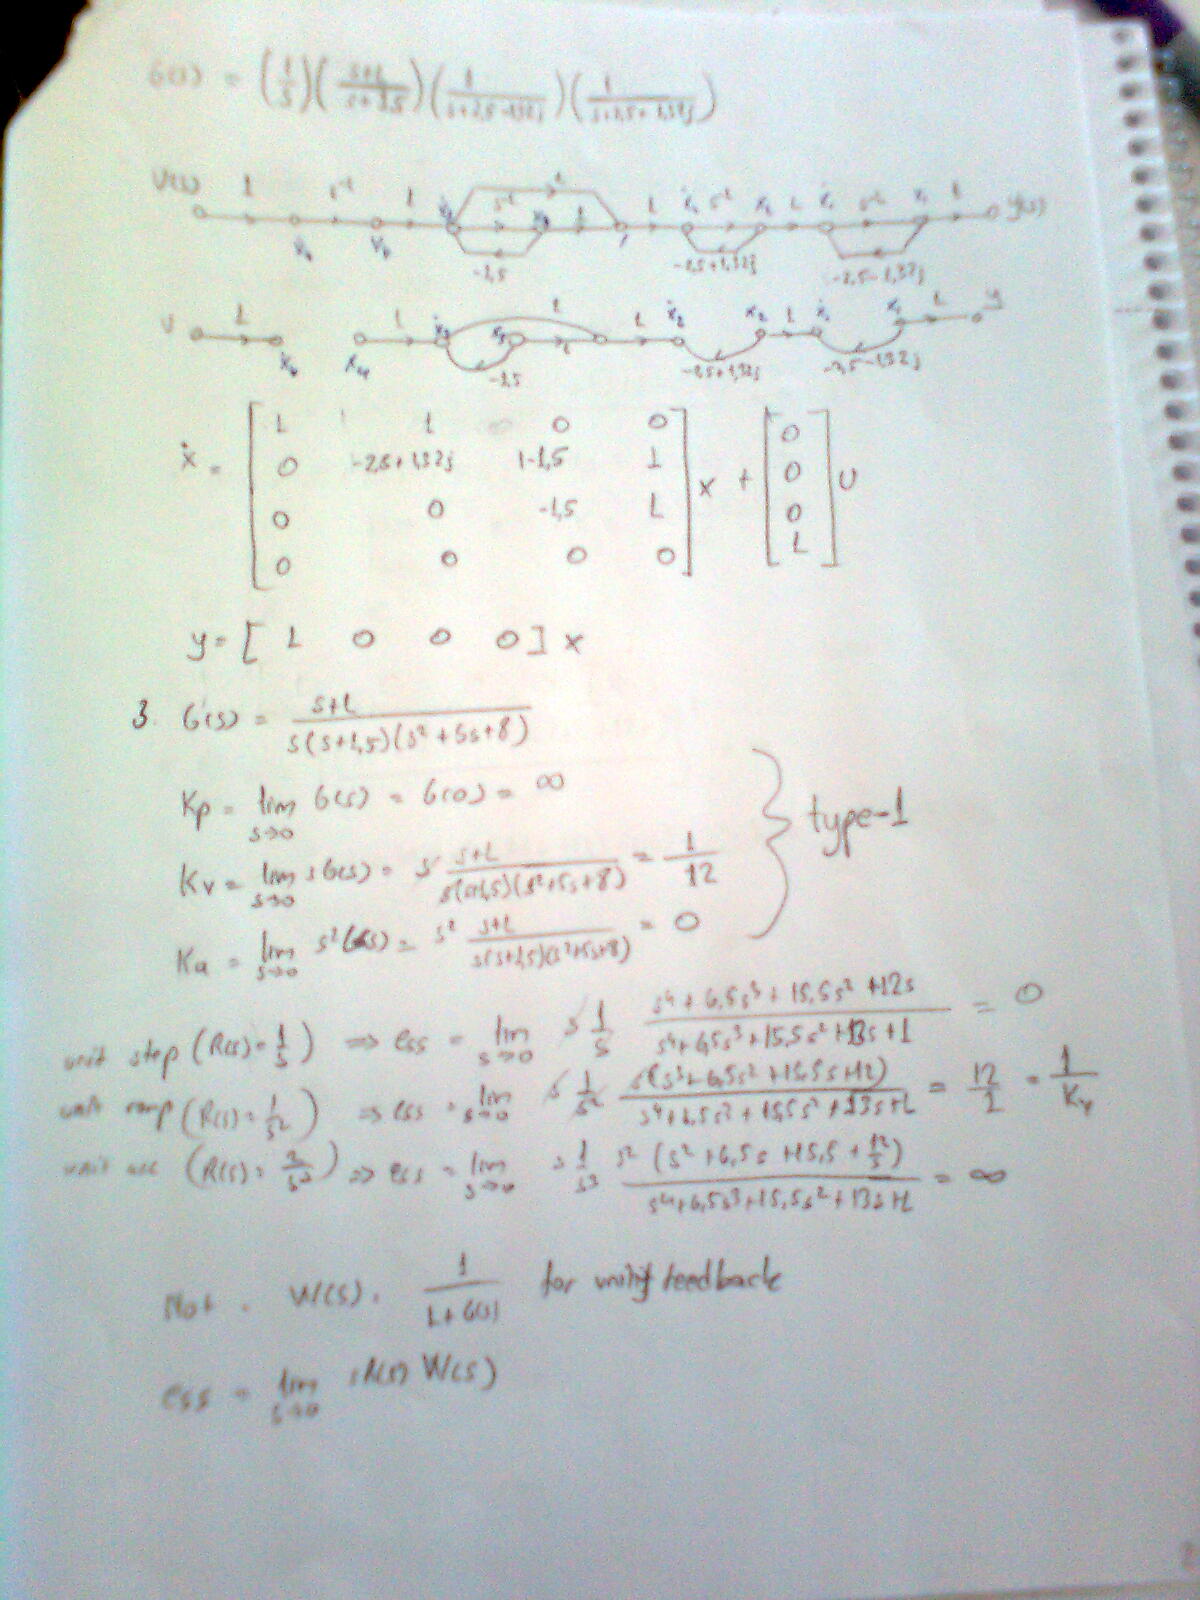 G(s) = (1/s)((s+1)/(s+1,5))(1/(s+2,5-1,32j))(1/(s+2,5+1,32j))
U(s) 1 s⁻¹ 1 ẋ₃ s⁻¹ x₃ 1 1 1 ẋ₂ s⁻¹ x₂ 1 ẋ₁ s⁻¹ x₁ 1 y(s)
ẋ₄ x₄ -1,5 -2,5+1,32j -2,5-1,32j
U 1 ẋ₄ x₄ 1 ẋ₃ x₃ 1 1 1 ẋ₂ x₂ 1 ẋ₁ x₁ 1 y
-1,5 -2,5+1,32j -2,5-1,32j
ẋ = [ 1 1 0 0 ; 0 -2,5+1,32j 1-1,5 1 ; 0 0 -1,5 1 ; 0 0 0 0 ] x + [ 0 ; 0 ; 0 ; 1 ] U
y = [ 1 0 0 0 ] x
3. G(s) = (s+1)/(s(s+1,5)(s²+5s+8))
Kp = lim s→0 G(s) = G(0) = ∞
Kv = lim s→0 sG(s) = s (s+1)/(s(s+1,5)(s²+5s+8)) = 1/12
type-1
Ka = lim s→0 s²G(s) = s² (s+1)/(s(s+1,5)(s²+5s+8)) = 0
unit step (R(s)=1/s) ⇒ ess = lim s→0 s 1/s (s⁴+6,5s³+15,5s²+12s)/(s⁴+6,5s³+15,5s²+13s+1) = 0
unit ramp (R(s)=1/s²) ⇒ ess = lim s→0 s 1/s² s(s³+6,5s²+15,5s+12)/(s⁴+6,5s³+15,5s²+13s+1) = 12/1 = 1/Kv
unit acc ⇒ ess = lim s→0 s 1/s³ s²(s²+6,5s+15,5+12/s)/(s⁴+6,5s³+15,5s²+13s+1) = ∞
Not . W(s) . 1/(1+G(s)) for unity feedback
ess = lim s→0 sR(s) W(s)